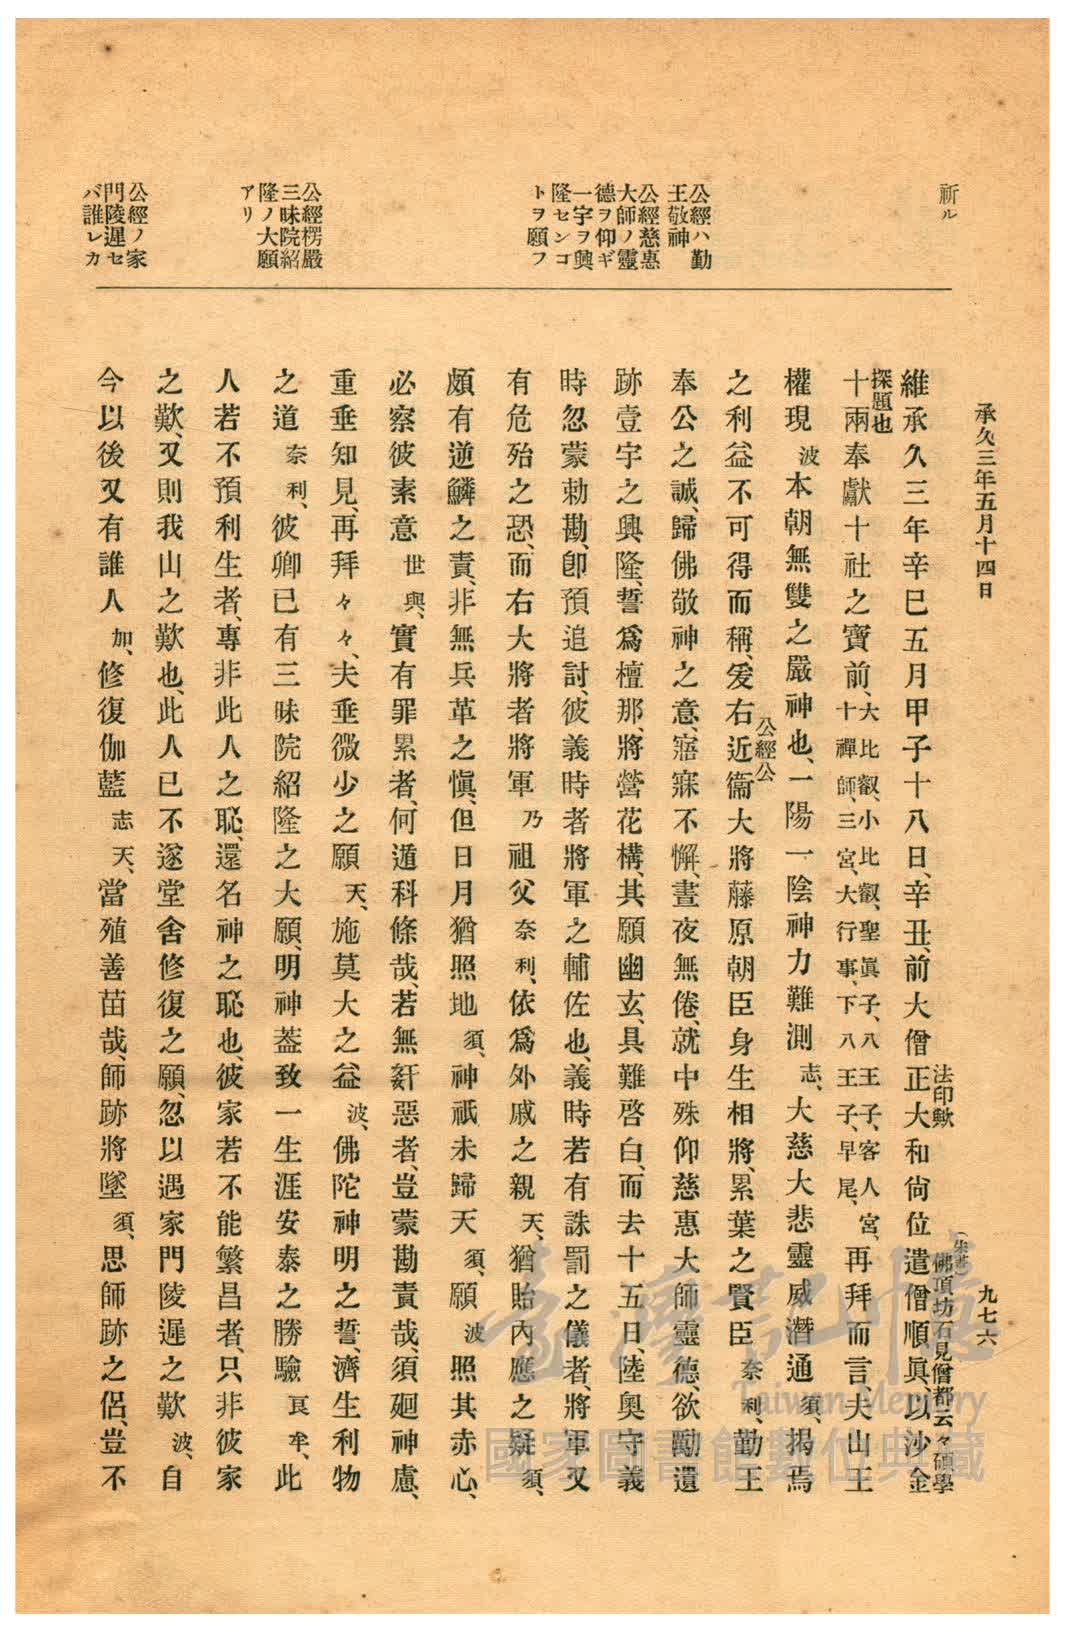 承久三年五月十四日
九七六
祈ル
公經ハ勤
王敬神
公經慈惠
大師ノ靈
德ヲ仰ギ
一宇ヲ興
隆センコ
トヲ願フ
公經楞嚴
三昧院紹
隆ノ大願
アリ
公經ノ家
門陵遲セ
バ誰レカ
維承久三年辛巳五月甲子十八日、辛丑、前大僧正大和尙位遣僧順眞、以沙金
法印歟
佛頂坊石見僧都云々碩學
探題也
十兩奉獻十社之寶前、大比叡、小比叡、聖眞子、八王子、客人宮、十禪師、三宮、大行事、下八王子、早尾、再拜而言、夫山王
權現波本朝無雙之嚴神也、一陽一陰神力難測志、大慈大悲靈威潛通須、揭焉
之利益不可得而稱、爰右近衞大將藤原朝臣身生相將、累葉之賢臣奈利、勤王
公經公
奉公之誠、歸佛敬神之意、寤寐不懈、晝夜無倦、就中殊仰慈惠大師靈德、欲勵遺
跡壹宇之興隆、誓爲檀那、將營花構、其願幽玄、具難啓白、而去十五日、陸奥守義
時忽蒙勅勘、卽預追討、彼義時者將軍之輔佐也、義時若有誅罰之儀者、將軍又
有危殆之恐、而右大將者將軍乃祖父奈利、依爲外戚之親天、猶貽內應之疑須、
頗有逆鱗之責、非無兵革之愼、但日月猶照地須、神祇未歸天須、願波照其赤心、
必察彼素意世與、實有罪累者、何遁科條哉、若無姧惡者、豈蒙勘責哉、須廻神慮、
重垂知見、再拜々々、夫垂微少之願天、施莫大之益波、佛陀神明之誓、濟生利物
之道奈利、彼卿已有三昧院紹隆之大願、明神蓋致一生涯安泰之勝驗哀牟、此
人若不預利生者、專非此人之恥、還名神之恥也、彼家若不能繁昌者、只非彼家
之歎、又則我山之歎也、此人已不遂堂舍修復之願、忽以遇家門陵遲之歎波、自
今以後又有誰人加、修復伽藍志天、當殖善苗哉、師跡將墜須、思師跡之侶、豈不
臺灣記憶
Taiwan Memory
國家圖書館數位典藏